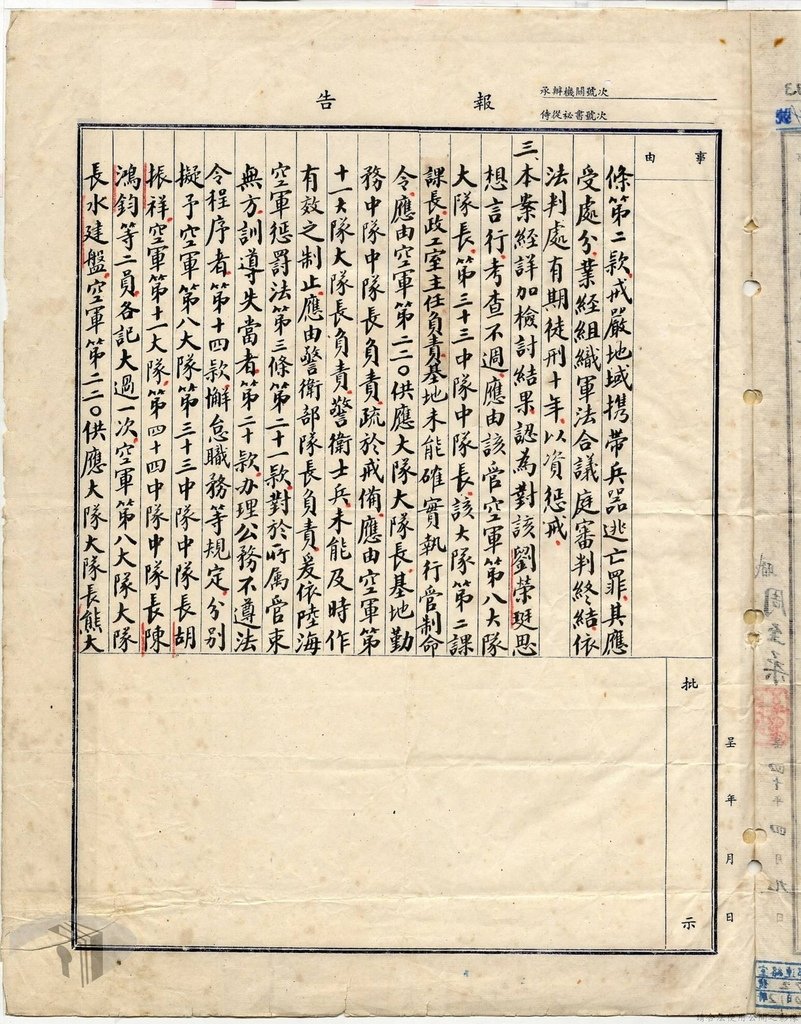 報告
承辦機關號次
侍從祕書號次
事由
條第二款戒嚴地域携帶兵器逃亡罪其應
受處分業經組織軍法合議庭審判終結依
法判處有期徒刑十年以資惩戒
三、本案經詳加檢討結果認為對該劉榮珽思
想言行考查不週應由該管空軍第八大隊
大隊長第三十三中隊中隊長該大隊第二課
課長政工室主任負責基地未能確實執行管制命
令應由空軍第二二〇供應大隊大隊長基地勤
務中隊中隊長負責疏於戒備應由空軍第
十一大隊大隊長負責警衛士兵未能及時作
有效之制止應由警衛部隊長負責爰依陸海
空軍惩罰法第三條第二十一款對於所属管束
無方訓導失當者第二十款办理公務不遵法
令程序者第十四款懈怠職務等規定分别
擬予空軍第八大隊第三十三中隊中隊長胡
振祥空軍第十一大隊第四十四中隊中隊長陳
鴻鈞等二員各記大過一次空軍第八大隊大隊
長水建磐空軍第二二〇供應大隊大隊長熊大
批示
呈 年 月 日
職周至柔
呈 四十年四月九日